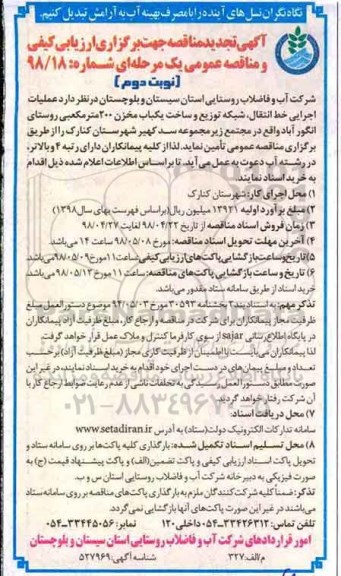 نگاه نگران نسل های آینده را با مصرف بهینه آب به آرامش تبدیل کنیم.
آگهی تجدید مناقصه جهت برگزاری ارزیابی کیفی
و مناقصه عمومی یک مرحله‌ای شماره: ۹۸/۱۸
(نوبت دوم)
شرکت آب و فاضلاب روستایی استان سیستان و بلوچستان در نظر دارد عملیات
اجرایی خط انتقال، شبکه توزیع و ساخت یکباب مخزن ۲۰۰ مترمکعبی روستای
انگور آباد واقع در مجتمع زیر مجموعه سد کهیر شهرستان کنارک را از طریق
برگزاری مناقصه عمومی تأمین نماید. لذا از کلیه پیمانکاران دارای رتبه ۴ و بالاتر،
در رشته آب دعوت به عمل می آید. تا بر اساس اطلاعات اعلام شده ذیل اقدام
به خرید اسناد نمایند.
۱) محل اجرای کار: شهرستان کنارک
۲) مبلغ برآورد اولیه ۱۳۹۲۱ میلیون ریال (بر اساس فهرست بهای سال ۱۳۹۸)
۳) زمان فروش اسناد مناقصه از تاریخ ۹۸/۰۴/۲۲ لغایت ۹۸/۰۴/۲۷
۴) آخرین مهلت تحویل اسناد مناقصه: مورخ ۹۸/۰۵/۰۸ ساعت ۱۴ می‌باشد.
۵) تاریخ و ساعت بازگشایی پاکت‌های ارزیابی کیفی: ساعت ۱۱ مورخ ۹۸/۰۵/۰۹ می‌باشد
۶) تاریخ و ساعت بازگشایی پاکت‌های مناقصه: ساعت ۱۱ مورخ ۹۸/۰۵/۱۳ می‌باشد.
خرید اسناد از طریق سامانه ستاد مقدور می‌باشد.
تذکر مهم: به استناد بند ۲ بخشنامه ۳۰۵۹۳ مورخ ۹۴/۰۵/۰۳ موضوع دستورالعمل مبلغ
ظرفیت مجاز پیمانکاران برای شرکت در مناقصه و ارجاع کار، مبلغ ظرفیت آزاد پیمانکاران
در پایگاه اطلاع رسانی sajar از سوی کارفرما کنترل و ملاک عمل قرار خواهد گرفت
لذا پیمانکاران می‌بایست با اطمینان از ظرفیت کاری مجاز (مبلغ ظرفیت آزاد) بر حسب
تعداد و مبلغ پیمان های در دست اجرای خود اقدام به خرید اسناد نمایند، در غیر این
صورت مطابق دستورالعمل رسیدگی به تخلفات ناشی از عدم رعایت ضوابط ارجاع کار با
آن شرکت رفتار خواهد گردید.
۷) محل دریافت اسناد:
سامانه تدارکات الکترونیک دولت (ستاد) به آدرس www.setadiran.ir
۸) محل تسلیم اسناد تکمیل شده: بارگذاری کلیه پاکت‌ها بر روی سامانه ستاد و
تحویل پاکت اسناد ارزیابی کیفی و پاکت تضمین (الف) و پاکت پیشنهاد قیمت (ج) به
صورت فیزیکی به دبیرخانه شرکت آب و فاضلاب روستایی استان س و ب.
تذکر: ضمناً کلیه شرکت کنندگان ملزم به بارگذاری پاکت‌های مناقصه بر روی سامانه ستاد
می‌باشند در غیر این صورت پاکت‌های آنها بازگشایی نمی‌گردد.
تلفن تماس: ۳۳۴۲۶۳۱۲-۰۵۴ داخلی ۱۲۰ نمابر: ۳۳۴۴۵۰۵۶-۰۵۴
امور قراردادهای شرکت آب و فاضلاب روستایی استان سیستان و بلوچستان
م الف: ۳۲۷ شناسه آگهی: ۵۲۷۹۶۹